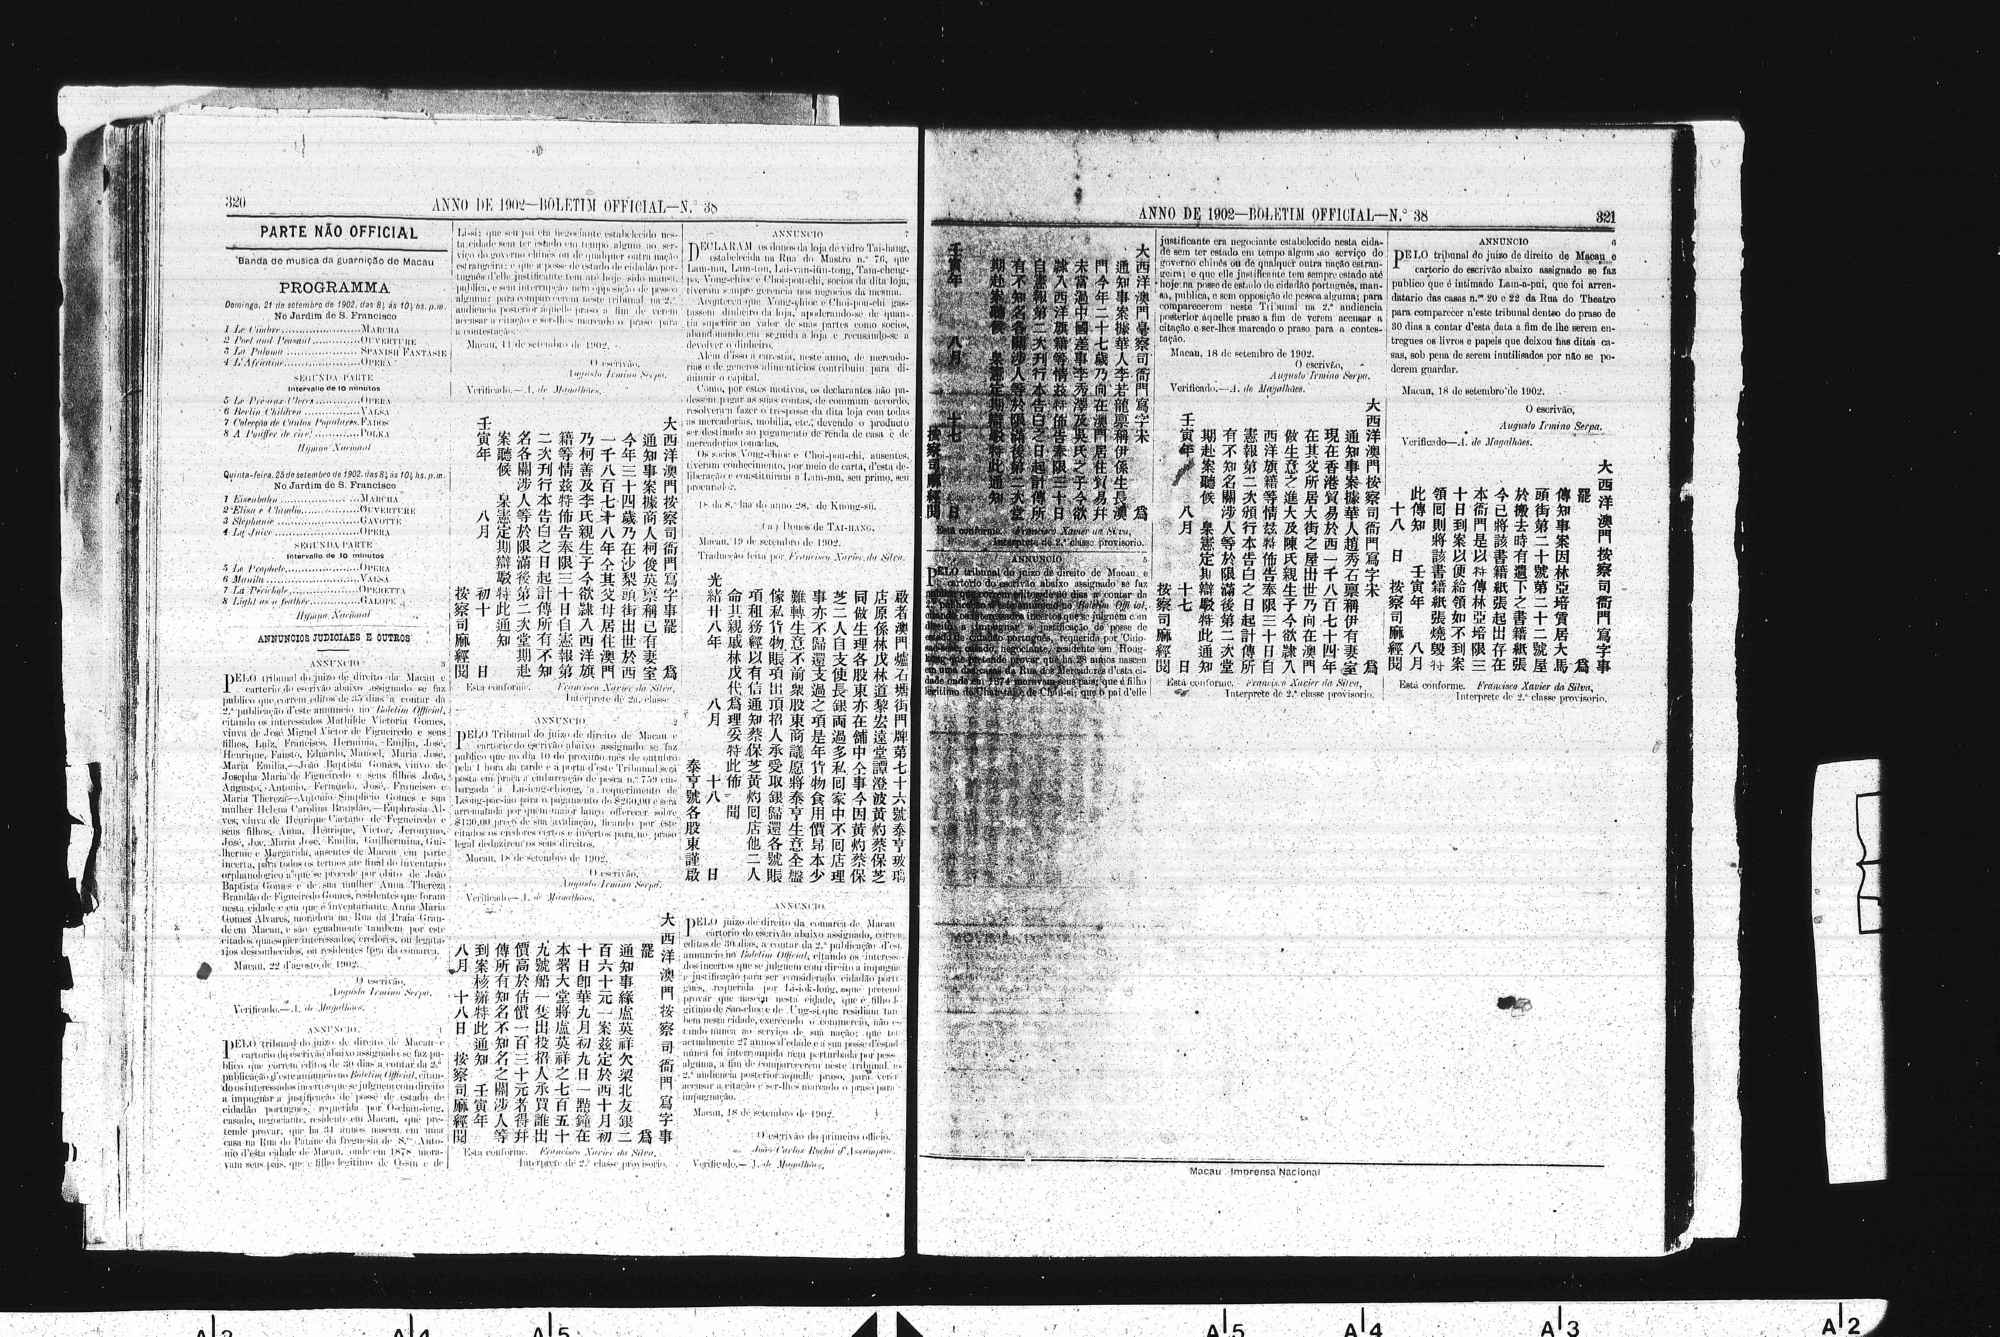 320
ANNO DE 1902—BOLETIM OFFICIAL—N.º 38
PARTE NÃO OFFICIAL
Banda de musica da guarnição de Macau
PROGRAMMA
Domingo, 21 de setembro de 1902, das 8½ ás 10½ hs. p.m.
No Jardim de S. Francisco
1 Le Timbre MARCHA
2 Poet and Peasant OUVERTURE
3 La Paloma SPANISH FANTASIE
4 L'Africaine OPERA
SEGUNDA PARTE
Intervallo de 10 minutos
5 Le Pré aux Clercs OPERA
6 Berlin Children VALSA
7 Colecção de Cantos Populares FADOS
8 A Pouffer de rire! POLKA
Hymno Nacional
Quinta-feira, 25 de setembro de 1902, das 8½ ás 10½ hs. p.m.
No Jardim de S. Francisco
1 Eisenbahn MARCHA
2 Elisa e Claudio OUVERTURE
3 Stephanie GAVOTTE
4 La Juive OPERA
SEGUNDA PARTE
Intervallo de 10 minutos
5 Le Prophete OPERA
6 Manila VALSA
7 La Périchole OPERETTA
8 Light as a feather GALOPE
Hymno Nacional
ANNUNCIOS JUDICIAES E OUTROS
ANNUNCIO 3
PELO tribunal do juizo de direito da Macau e
cartorio do escrivão abaixo assignado se faz
publico que correm editos de 35 dias a contar da
2.ª publicação d'este annuncio no Boletim Official,
citando os interessados Mathilde Victoria Gomes,
viuva de José Miguel Victor de Figueiredo e seus
filhos, Luiz, Francisco, Herminia, Emilia, José,
Henrique, Fausto, Eduardo, Manoel, Maria José,
Maria Emilia,—João Baptista Gomes, viuvo de
Josepha Maria de Figueiredo e seus filhos João,
Augusto, Antonio, Fernando, José, Francisco e
Maria Thereza—Antonio Simplicio Gomes e sua
mulher Helena Carolina Brandão,—Euphrasia Al-
ves, viuva de Henrique Caetano de Figueiredo e
seus filhos, Anna, Henrique, Victor, Jeronymo,
José, Joé, Maria José, Emilia, Guilhermina, Gui-
lherme e Margarida, ausentes de Macau em parte
incerta, para todos os termos até final do inventario
orphanologico a que se procede por obito de João
Baptista Gomes e de sua mulher Anna Thereza
Brandão de Figueiredo Gomes, residentes que foram
nesta cidade e em que é inventariante Anna Maria
Gomes Alvares, moradora na Rua da Praia Gran-
de em Macau, e são egualmente tambem por este
citados quaesquer interessados, credores, ou legata-
rios desconhecidos, ou residentes fóra da comarca.
Macau, 22 d'agosto de 1902.
O escrivão,
Augusto Irmino Serpa.
Verificado.—A. de Magalhães.
ANNUNCIO 1
PELO tribunal do juizo de direito de Macau e
cartorio do escrivão abaixo assignado se faz pu-
blico que correm editos de 30 dias a contar da 2.ª
publicação d'este annuncio no Boletim Official, citan-
do os interessados incertos que se julguem com direito
a impugnar a justificação de posse de estado de
cidadão portuguez, requerida por O-chan-ieng,
casado, negociante, residente em Macau, que pre-
tende provar, que ha 34 annos nasceu em uma
casa na Rua do Patane da freguesia de S.to Anto-
nio d'esta cidade de Macau, onde em 1878 mora-
vam seus pais, que é filho legitimo de O-sim e de
Li-si; que seu pai era negociante estabelecido nes-
ta cidade sem ter estado em tempo algum ao ser-
viço do governo chinês ou de qualquer outra nação
estrangeira; e que a posse de estado de cidadão por-
tuguês d'elle justificante tem até hoje, sido mansa,
publica, e sem interrupção nem opposição de pessoa
alguma; para comparecerem neste tribunal na 2.ª
audiencia posterior áquelle praso a fim de verem
accusar a citação e ser-lhes marcado o praso para
a contestação.
Macau, 11 de setembro de 1902.
O escrivão,
Augusto Irmino Serpa.
Verificado.—A. de Magalhães.
大西洋澳門按察司衙門寫字事罷 爲
通知事案據商人柯俊英禀稱已有妻室
今年三十四歲乃在沙梨頭街出世於西
一千八百七十八年仝其父母居住澳門
乃柯善及李氏親生子今欲隸入西洋旗
籍等情茲特佈告奉限三十日自憲報第
二次刊行本告白之日起計傳所有不知
名各關涉人等於限滿後第二次堂期赴
案聽候 臬憲定期辯駁特此通知
壬寅年 八月 初十 日
按察司麻經閱
Está conforme. Francisco Xavier da Silva,
Interprete de 2a. classe
ANNUNCIO 2
PELO Tribunal do juizo de direito de Macau e
cartorio do escrivão abaixo assignado se faz
publico que no dia 10 do proximo mês de outubro
pela 1 hora da tarde e á porta d'este Tribunal será
posta em praça a embarcação de pesca n.º 759 em-
bargada a Lu-ieng-chiong, a requerimento de
Leong-pac-iao para o pagamento de $260,00 e será
arrematada por quem maior lanço offerecer sobre
$130,00 preço de sua avaliação, ficando por este
citados os credores certos e incertos para no praso
legal deduzirem os seus direitos.
Macau, 18 de setembro de 1902.
O escrivão,
Augusto Irmino Serpa.
Verificado.—A. de Magalhães.
大西洋澳門按察司衙門寫字事
罷 爲
通知事緣盧英祥欠梁北友銀二
百六十元一案茲定於西十月初
十日卽華九月初九日一點鐘在
本署大堂將盧英祥之七百五十
九號船一隻出投招人承買誰出
價高於估價一百三十元者得幷
傳所有知名不知名之關涉人等
到案核辦特此通知 壬寅年
八月 十八日 按察司麻經閱
Está conforme. Francisco Xavier da Silva,
Interprete de 2.ª classe provisorio.
ANNUNCIO 7
DECLARAM os donos da loja de vidro Tai-hang,
estabelecida na Rua do Mastro n.º 76, que
Lam-mu, Lam-tou, Lai-van-iün-tong, Tam-cheng-
po, Vong-chioc e Choi-pou-chi, socios da dita loja,
tiveram sempre gerencia nos negocios da mesma.
Aconteceu que Vong-chioc e Choi-pou-chi gas-
tassem dinheiro da loja, apoderando-se de quan-
tia superior ao valor de suas partes como socios,
abandonando em seguida a loja e recusando-se a
devolver o dinheiro.
Alem d'isso a carestia, neste anno, de mercado-
rias e de generos alimenticios contribuiu para di-
minuir o capital.
Como, por estes motivos, os declarantes não pu-
dessem pagar as suas contas, de commum accordo,
resolveram fazer o trespasse da dita loja com todas
as mercadorias, mobilia, etc.; devendo o producto
ser destinado ao pagamento de renda de casa e de
mercadorias tomadas.
Os socios Vong-chioc e Choi-pou-chi, ausentes,
tiveram conhecimento, por meio de carta, d'esta de-
liberação e constituiram a Lam-mu, seu primo, seu
procurador.
18 da 8.ª lua do anno 28.º de Kuong-sü.
(aa) Donos de TAI-HANG.
Macau, 19 de setembro de 1902.
Traducção feita por Francisco Xavier da Silva.
啟者澳門爐石塘街門牌第七十六號泰亨玻璃
店原係林戊林道黎宏遠堂譚澄波黃灼蔡保芝
同做生理各股東亦在舖中仝事今因黃灼蔡保
芝二人自支使長銀兩過多私囘家中不囘店理
事亦不歸還支過之項是年貨物食用價昻本少
難轉生意不前衆股東商議愿將泰亨生意全盤
傢私貨物賬項出頂招人承受取銀歸還各號賬
項租務經以有信通知蔡保芝黃灼囘店他二人
命其親戚林戊代爲理妥特此佈 聞
光緒廿八年 八月 十八 日
泰亨號各股東謹啟
ANNUNCIO
PELO juizo de direito da comarca de Macau
cartorio do escrivão abaixo assignado, correm
editos de 30 dias, a contar da 2.ª publicação d'est
annuncio no Boletim Official, citando os interess-
dos incertos que se julguem com direito a impugna
a justificação para ser considerado cidadão portu-
guez, requerida por Li-iok-long, que pretend
provar que nasceu nesta cidade, que é filho l-
gitimo de Sao-chec e de Ung-si que residiam tam
bem nesta cidade, exercendo o commercio, não es-
tando nunca ao serviço de sua nação; que tem
actualmente 27 annos d'edade e a sua posse d'estad
nunca foi interrompida nem perturbada por pess-
alguma, a fim de comparecerem neste tribunal na
2.ª audiencia posterior áquelle praso, para verem
accusar a citação e ser-lhes marcado o praso para
impugnação.
Macau, 18 de setembro de 1902.
O escrivão do primeiro officio,
João Carlos Rocha d'Assumpção.
Verifiquei,—A. de Magalhães.
ANNO DE 1902—BOLETIM OFFICIAL—N.º 38
321
大西洋澳門臬察司衙門寫字宋 爲
通知事案據華人李若龍禀稱伊係生長澳
門今年二十七歲乃向在澳門居住貿易幷
未當過中國差事李秀澤及吳氏之子今欲
隸入西洋旗籍等情茲特佈告奉限三十日
自憲報第二次刊行本告白之日起計傳所
有不知名各關涉人等於限滿後第二次堂
期赴案聽候 臬憲定期辯駁特此通知
壬寅年 八月 十七 日
按察司麻經閱
Está conforme. Francisco Xavier da Silva,
Interprete de 2.ª classe provisorio.
ANNUNCIO 5
PELO tribunal do juizo de direito de Macau e
cartorio do escrivão abaixo assignado se faz
publico que correm editos de 30 dias a contar da
2.ª publicação d'este annuncio no Boletim Official,
citando os interessados incertos que se julguem com
direito a impugnar a justificação de posse de
estado de cidadão portuguez, requerida por Chio-
sao-sec, casado, negociante, residente em Hong-
kong que pretende provar, que ha 28 annos nasceu
em uma das casas da Rua dos Mercadores d'esta ci-
dade onde em 1874 moravam seus pais; que é filho
legitimo de Chan-tai e de Chan-si; que o pai d'elle
justificante era negociante estabelecido nesta cida-
de sem ter estado em tempo algum ao serviço do
governo chinês ou de qualquer outra nação estran-
geira; e que elle justificante tem sempre estado até
hoje na posse de estado de cidadão português, man-
sa, publica, e sem opposição de pessoa alguma; para
comparecerem neste Tribunal na 2.ª audiencia
posterior áquelle praso a fim de verem accusar a
citação e ser-lhes marcado o praso para a contes-
tação.
Macau, 18 de setembro de 1902.
O escrivão,
Augusto Irmino Serpa.
Verificado.—A. de Magalhães.
大西洋澳門按察司衙門寫字宋 爲
通知事案據華人趙秀石禀稱伊有妻室
現在香港貿易於西一千八百七十四年
在其父所居大街之屋出世乃向在澳門
做生意之進大及陳氏親生子今欲隸入
西洋旗籍等情茲特佈告奉限三十日自
憲報第二次頒行本告白之日起計傳所
有不知名關涉人等於限滿後第二次堂
期赴案聽候 臬憲定期辯駁特此通知
壬寅年 八月 十七 日
按察司麻經閱
Está conforme. Francisco Xavier da Silva,
Interprete de 2.ª classe provisorio.
ANNUNCIO 6
PELO tribunal do juizo de direito de Macau e
cartorio do escrivão abaixo assignado se faz
publico que é intimado Lam-a-pui, que foi arren-
datario das casas n.os 20 e 22 da Rua do Theatro
para comparecer n'este tribunal dentro do praso de
30 dias a contar d'esta data a fim de lhe serem en-
tregues os livros e papeis que deixou nas ditas ca-
sas, sob pena de serem inutilisados por não se po-
derem guardar.
Macau, 18 de setembro de 1902.
O escrivão,
Augusto Irmino Serpa.
Verificado—A. de Magalhães.
大西洋澳門按察司衙門寫字事
罷 爲
傳知事案因林亞培賃居大馬
頭街第二十號第二十二號屋
於搬去時有遺下之書籍紙張
今已將該書籍紙張起出存在
本衙門是以特傳林亞培限三
十日到案以便給領如不到案
領囘則將該書籍紙張燒毀特
此傳知 壬寅年 八月
十八 日 按察司麻經閱
Está conforme. Francisco Xavier da Silva,
Interprete de 2.ª classe provisorio.
Macau: Imprensa Nacional
A|5
A|4
A|3
A|2